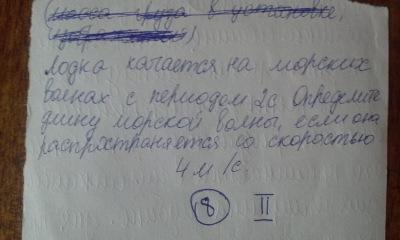 (масса груда в установке,
лодка качается на морских
волнах с периодом 2с Определите
длину морской волны, если она
распространяется со скоростью
4 м/с.
8 II